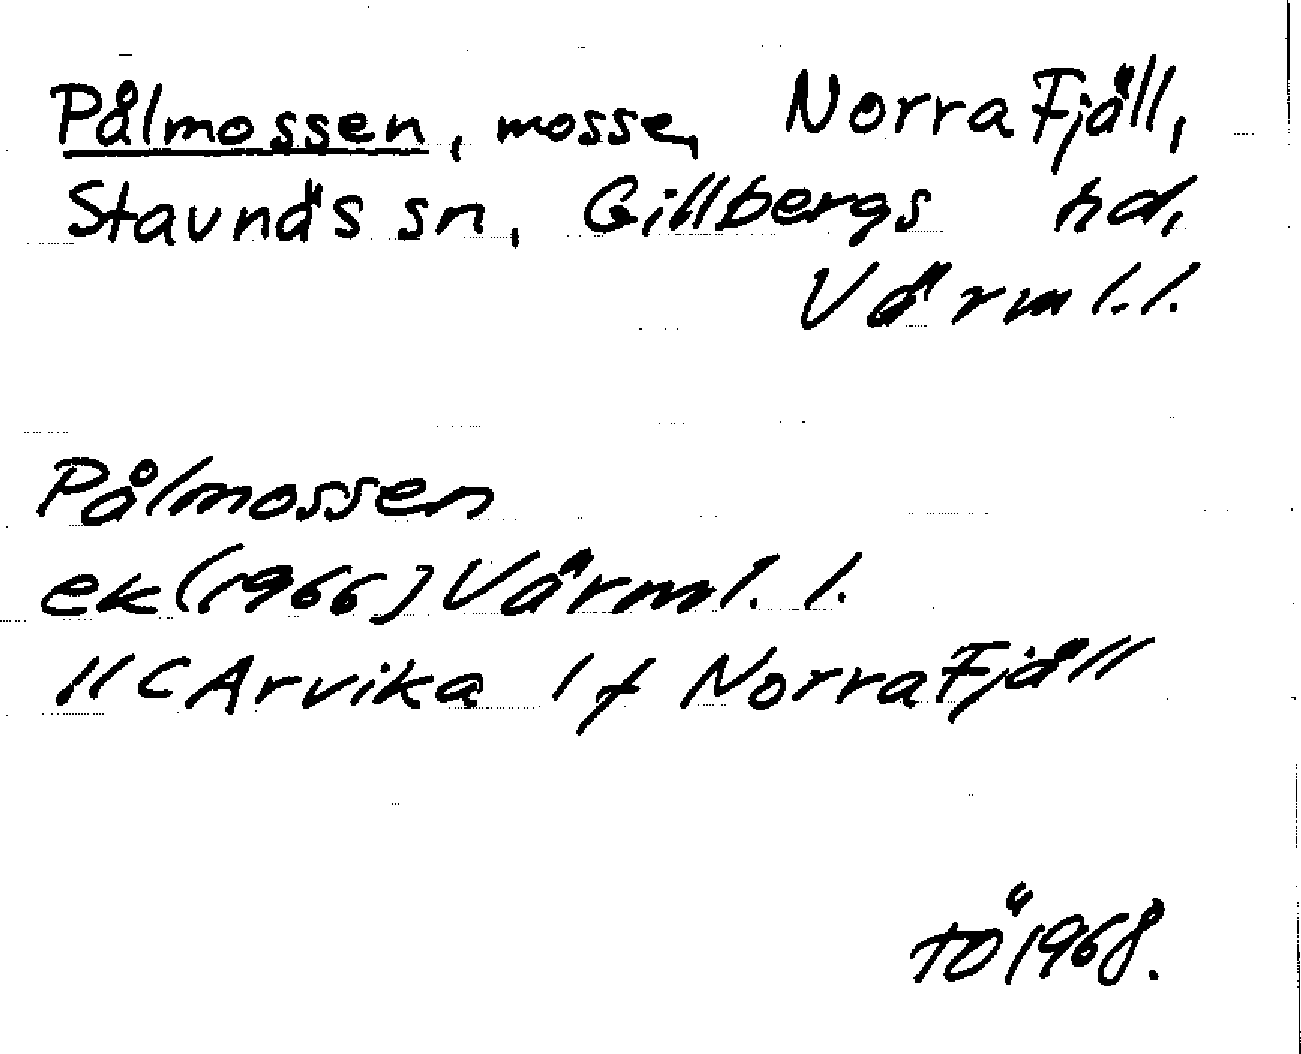 Pålmossen, mosse, Norra Fjäll,
Stavnäs sn, Gillbergs hd,
Värml.l.
Pålmossen
ek (1966) Värml. l.
11 C Arvika 1 f Norra Fjäll
TÖ 1968.